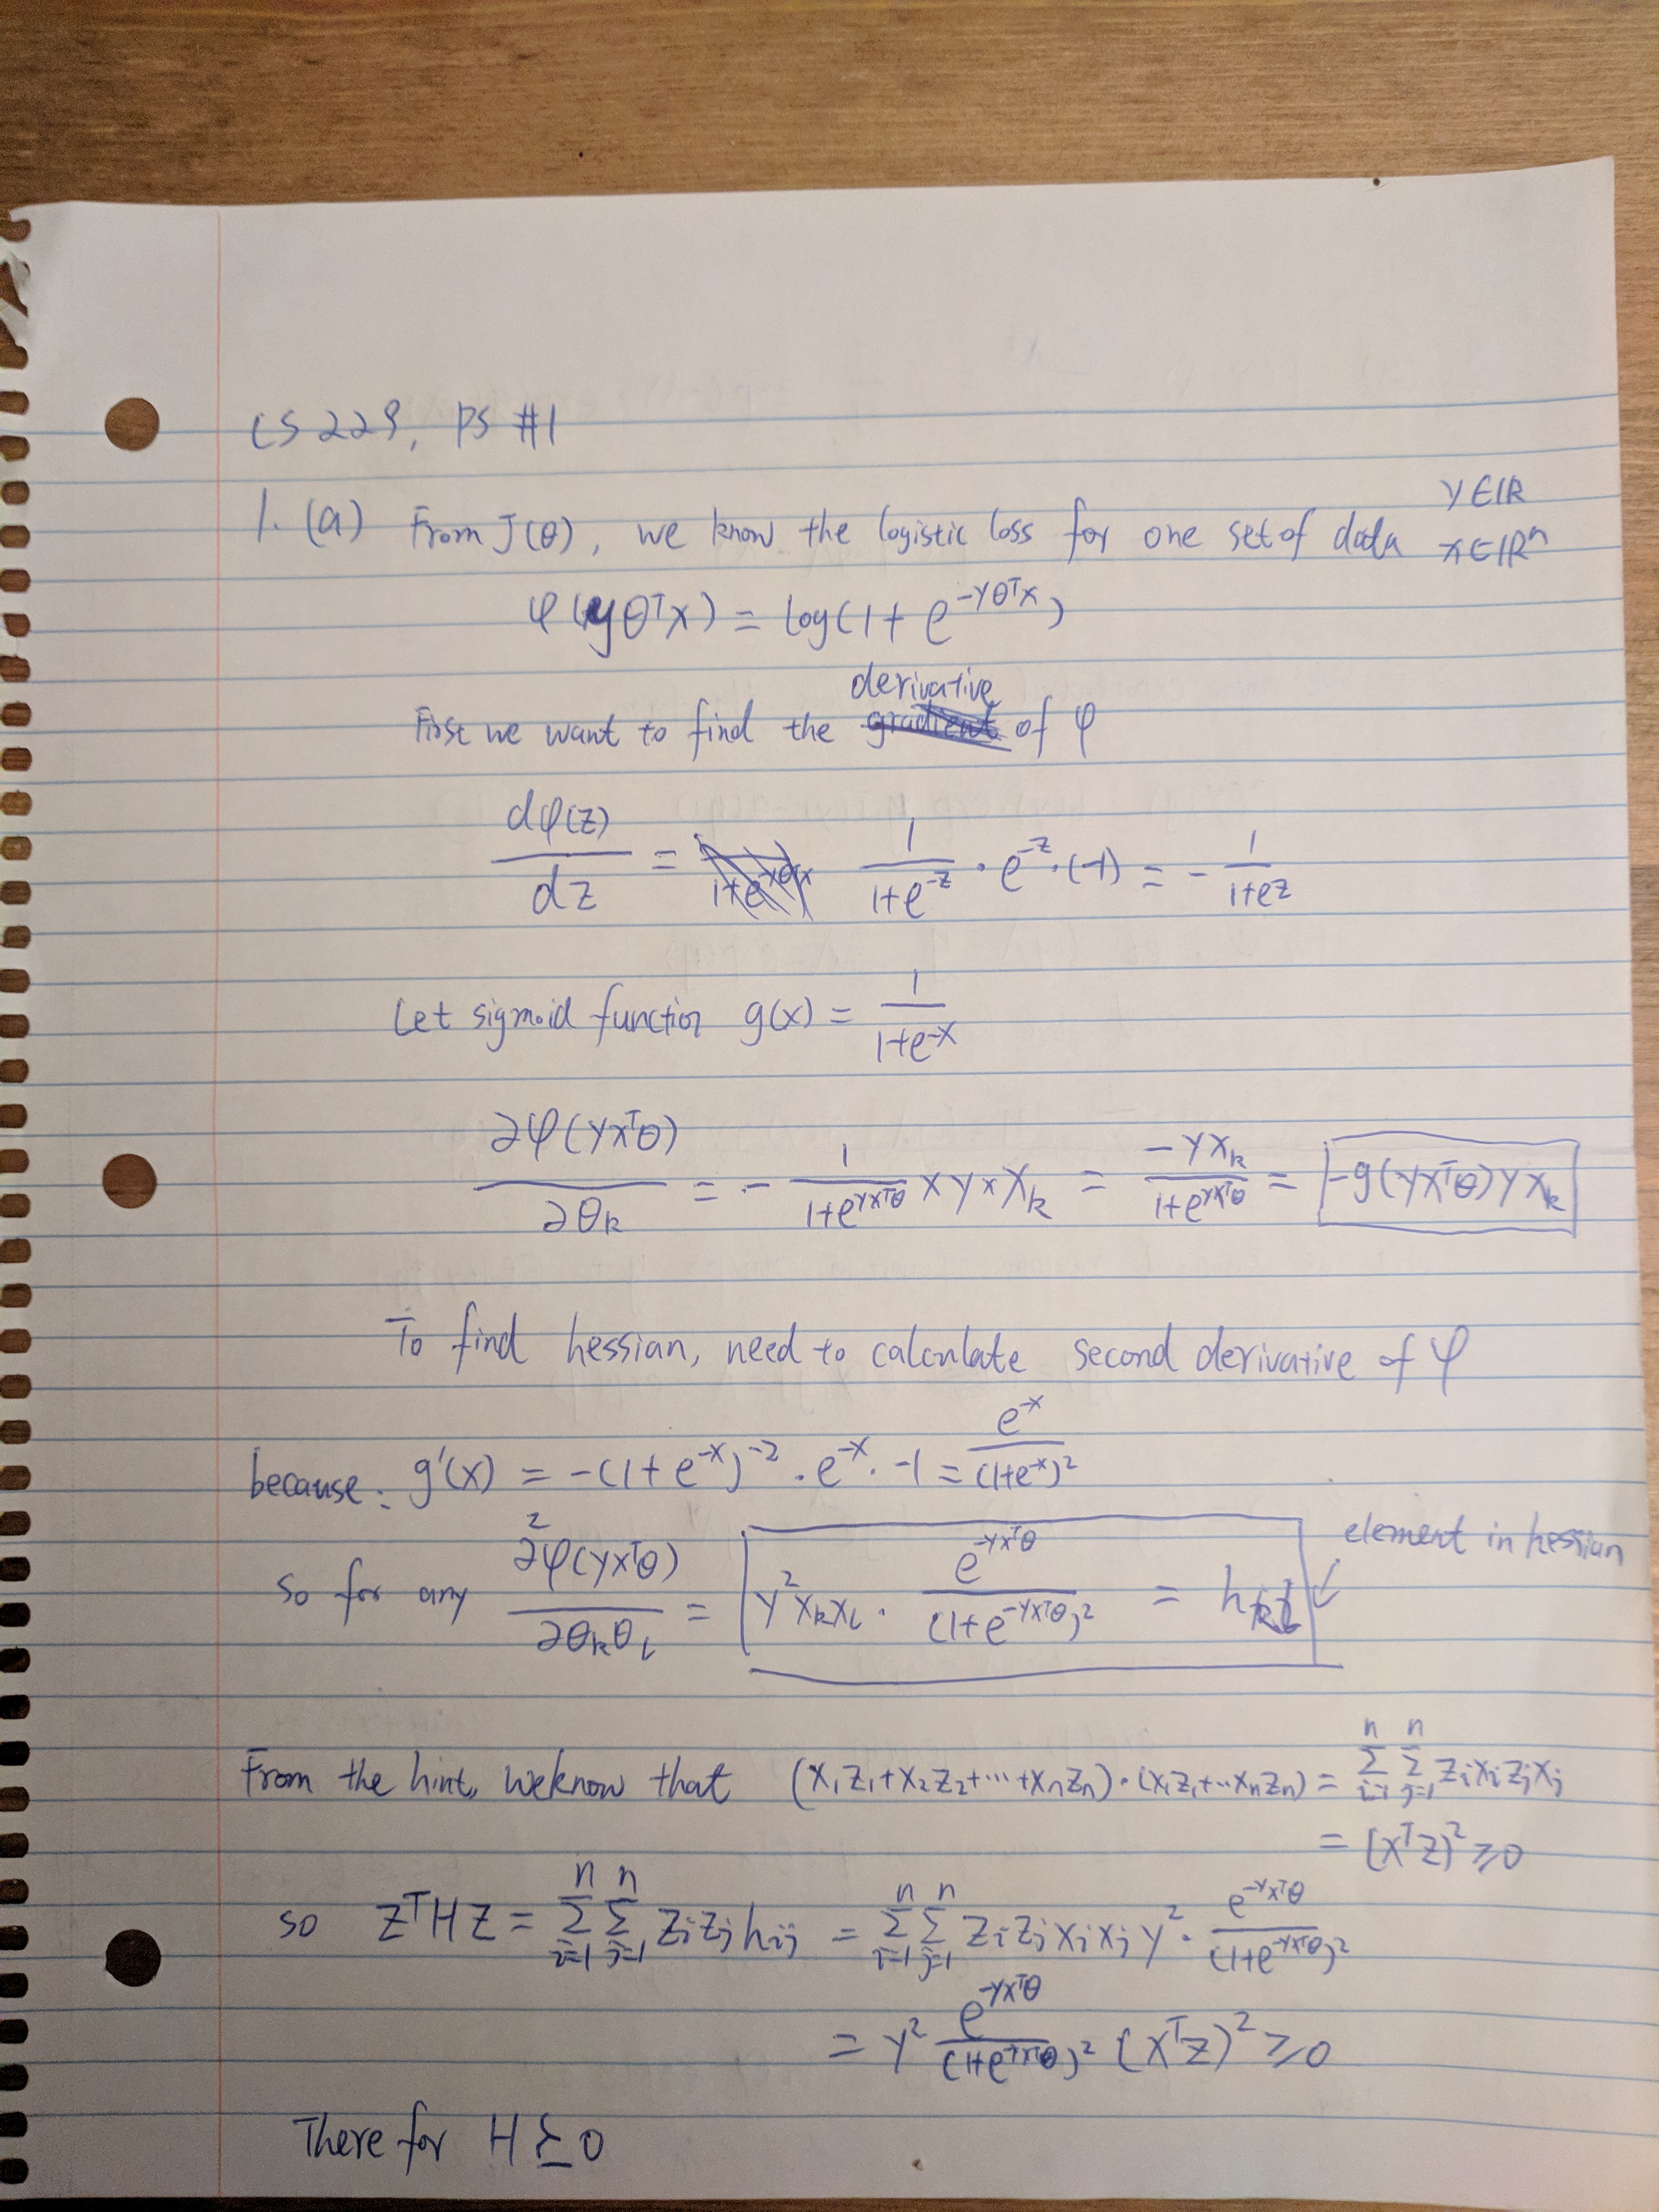 CS 229, PS #1
1. (a) From J(θ), we know the logistic loss for one set of data y∈ℝ x∈ℝⁿ
φ(yθᵀx) = log(1 + e^{-yθᵀx})
First we want to find the derivative of φ
dφ(z)/dz = 1/(1+e^{-z}) · e^{-z} · (-1) = - 1/(1+e^z)
Let sigmoid function g(x) = 1/(1+e^{-x})
∂φ(yxᵀθ)/∂θ_k = - 1/(1+e^{yxᵀθ}) × y × x_k = -yx_k/(1+e^{yxᵀθ}) = -g(yxᵀθ)yx_k
To find hessian, need to calculate second derivative of φ
because: g'(x) = -(1+e^{-x})^{-2} · e^{-x} · -1 = e^{-x}/(1+e^{-x})²
so for any ∂²φ(yxᵀθ)/∂θ_kθ_l = y²x_kx_l · e^{-yxᵀθ}/(1+e^{-yxᵀθ})² = h_{kl} ← element in hessian
From the hint, we know that (x₁z₁+x₂z₂+···+x_nz_n)·(x₁z₁+··x_nz_n) = Σ_{i=1}^n Σ_{j=1}^n z_ix_iz_jx_j
= (xᵀz)² ≥0
so zᵀHz = Σ_{i=1}^n Σ_{j=1}^n z_iz_jh_{ij} = Σ_{i=1}^n Σ_{j=1}^n z_iz_jx_ix_jy² · e^{-yxᵀθ}/(1+e^{-yxᵀθ})²
= y² e^{-yxᵀθ}/(1+e^{-yxᵀθ})² (xᵀz)² ≥0
There for H ⪰ 0